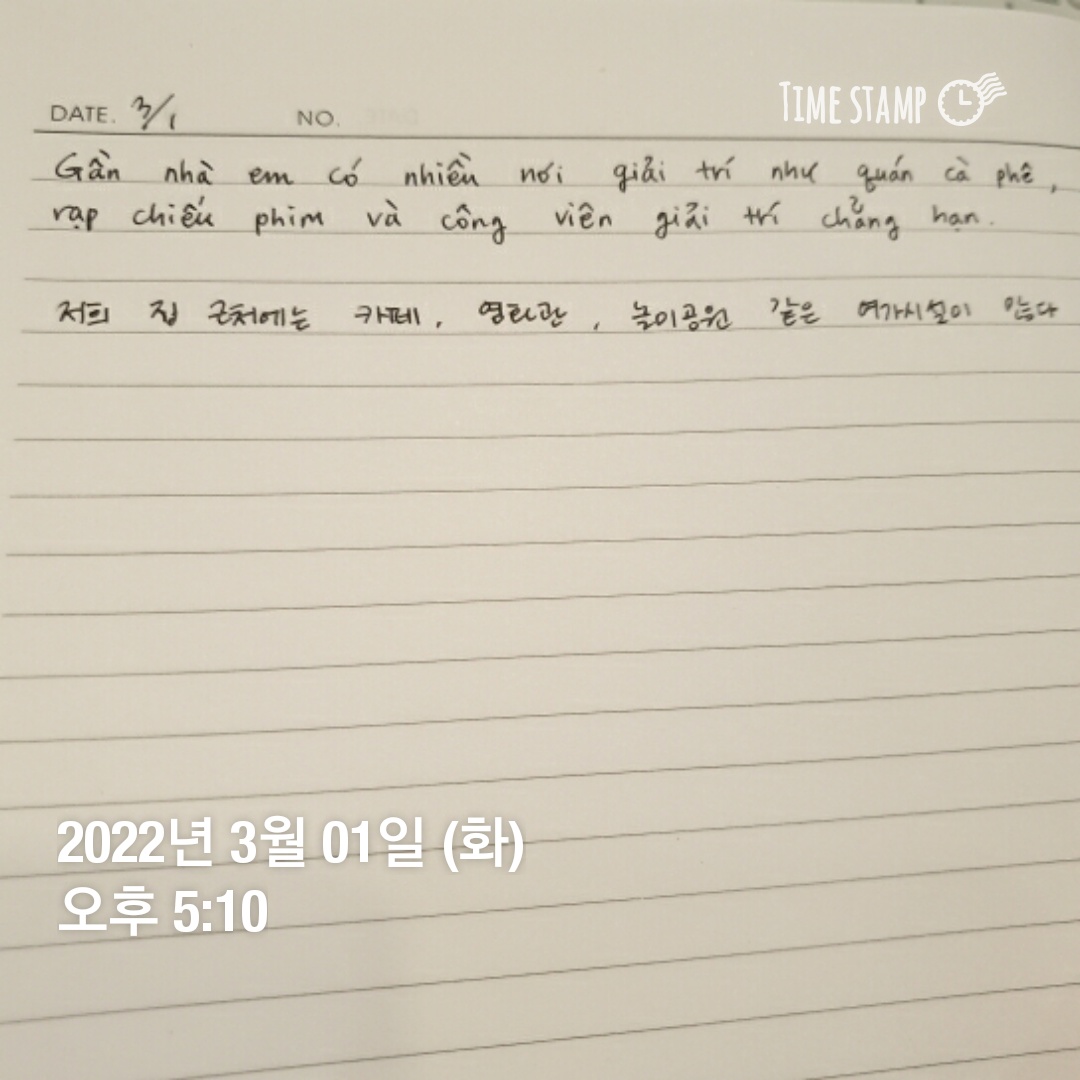 TIME STAMP
DATE. 3/1 NO.
Gần nhà em có nhiều nơi giải trí như quán cà phê,
rạp chiếu phim và công viên giải trí chẳng hạn.
저희 집 근처에는 카페, 영화관, 놀이공원 같은 여가시설이 많다
2022년 3월 01일 (화)
오후 5:10